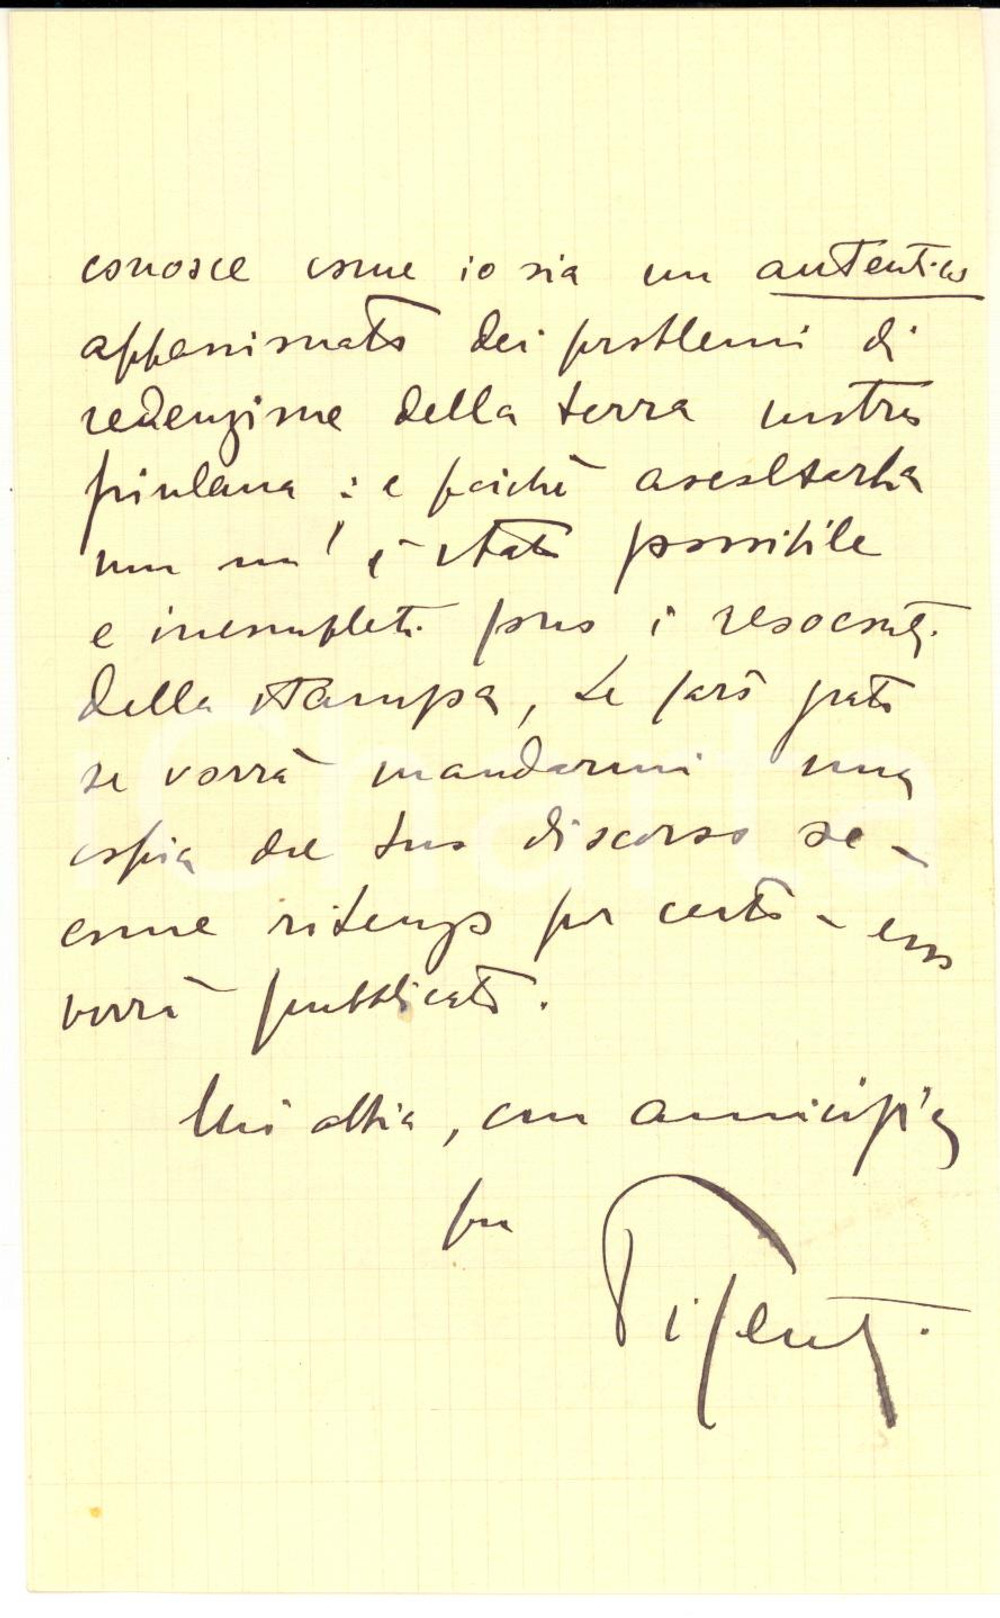 conosce come io sia un autentico
appassionato dei problemi di
redenzione della terra nostra
friulana : e poichè ascoltarla
non m' è stato possibile
e incompleti sono i resoconti
della stampa, Le sarò grato
se vorrà mandarmi una
copia del suo discorso se -
come ritengo per certo - esso
verrà pubblicato.
Mi abbia, con amicizia
suo
Pisenti.